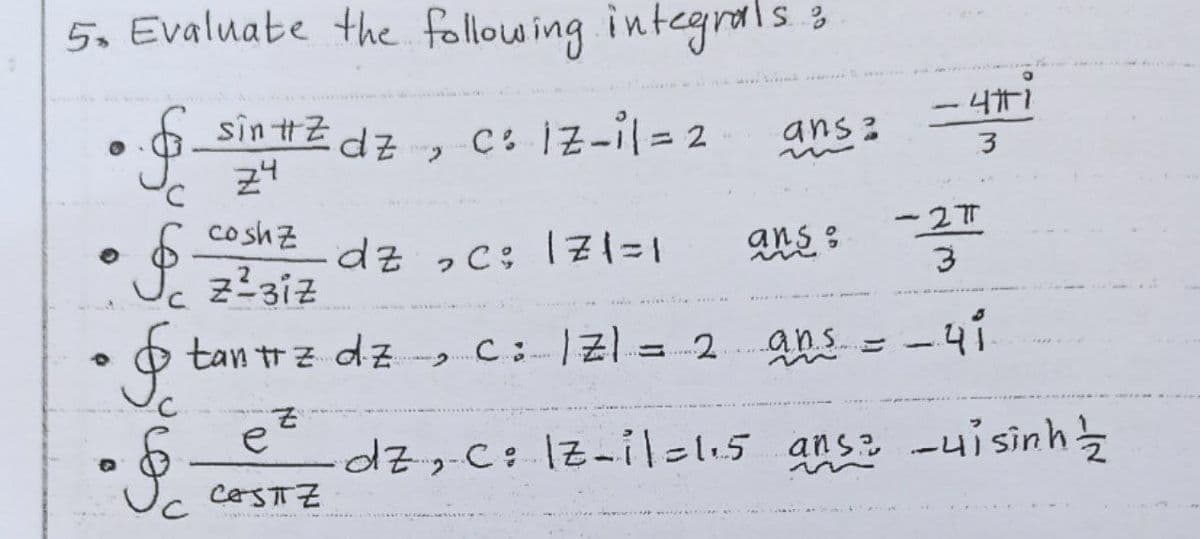 5. Evaluate the following integrals :
• ∮_C sin πz / z⁴ dz , C: |z-i| = 2 ans: -4πi / 3
• ∮_C cosh z / z²-3iz dz , C: |z|=1 ans: -2π / 3
• ∮_C tan πz dz , C: |z| = 2 ans = -4i
• ∮_C e^z / cos πz dz , C: |z-i|=1.5 ans: -4i sinh ½